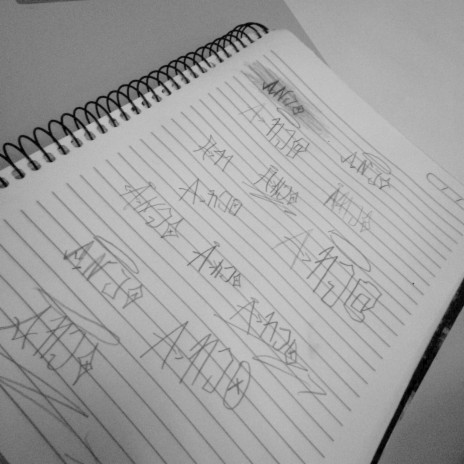 ANJO
A-NJO
ANJO
ANJO
ANJO
A-NJO
ANJO
ANJO
A-NJO
ANJO
A-NJO
ANJO
A-NJO
ANJO